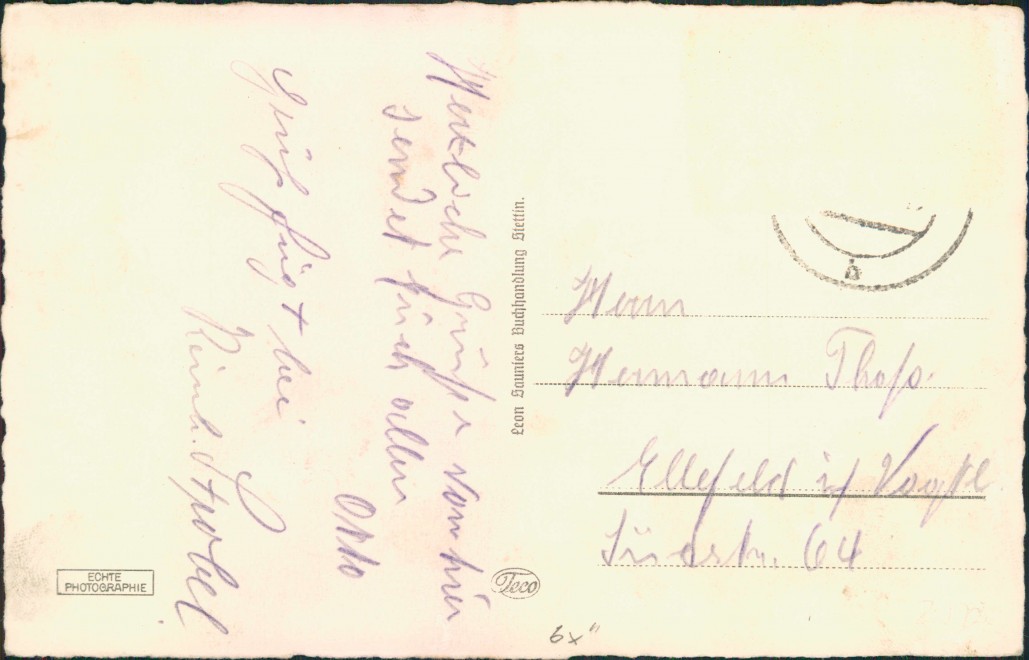 Herzliche Grüße von hier
sendet Euch allen
Otto
Gruß fügt bei
Reinh. Strobel
Leon Sauniers Buchhandlung Stettin.
b
Herrn
Hermann Thoß.
Ellefeld i/ Vogtl
Südstr. 64
ECHTE
PHOTOGRAPHIE
Teco
6x"